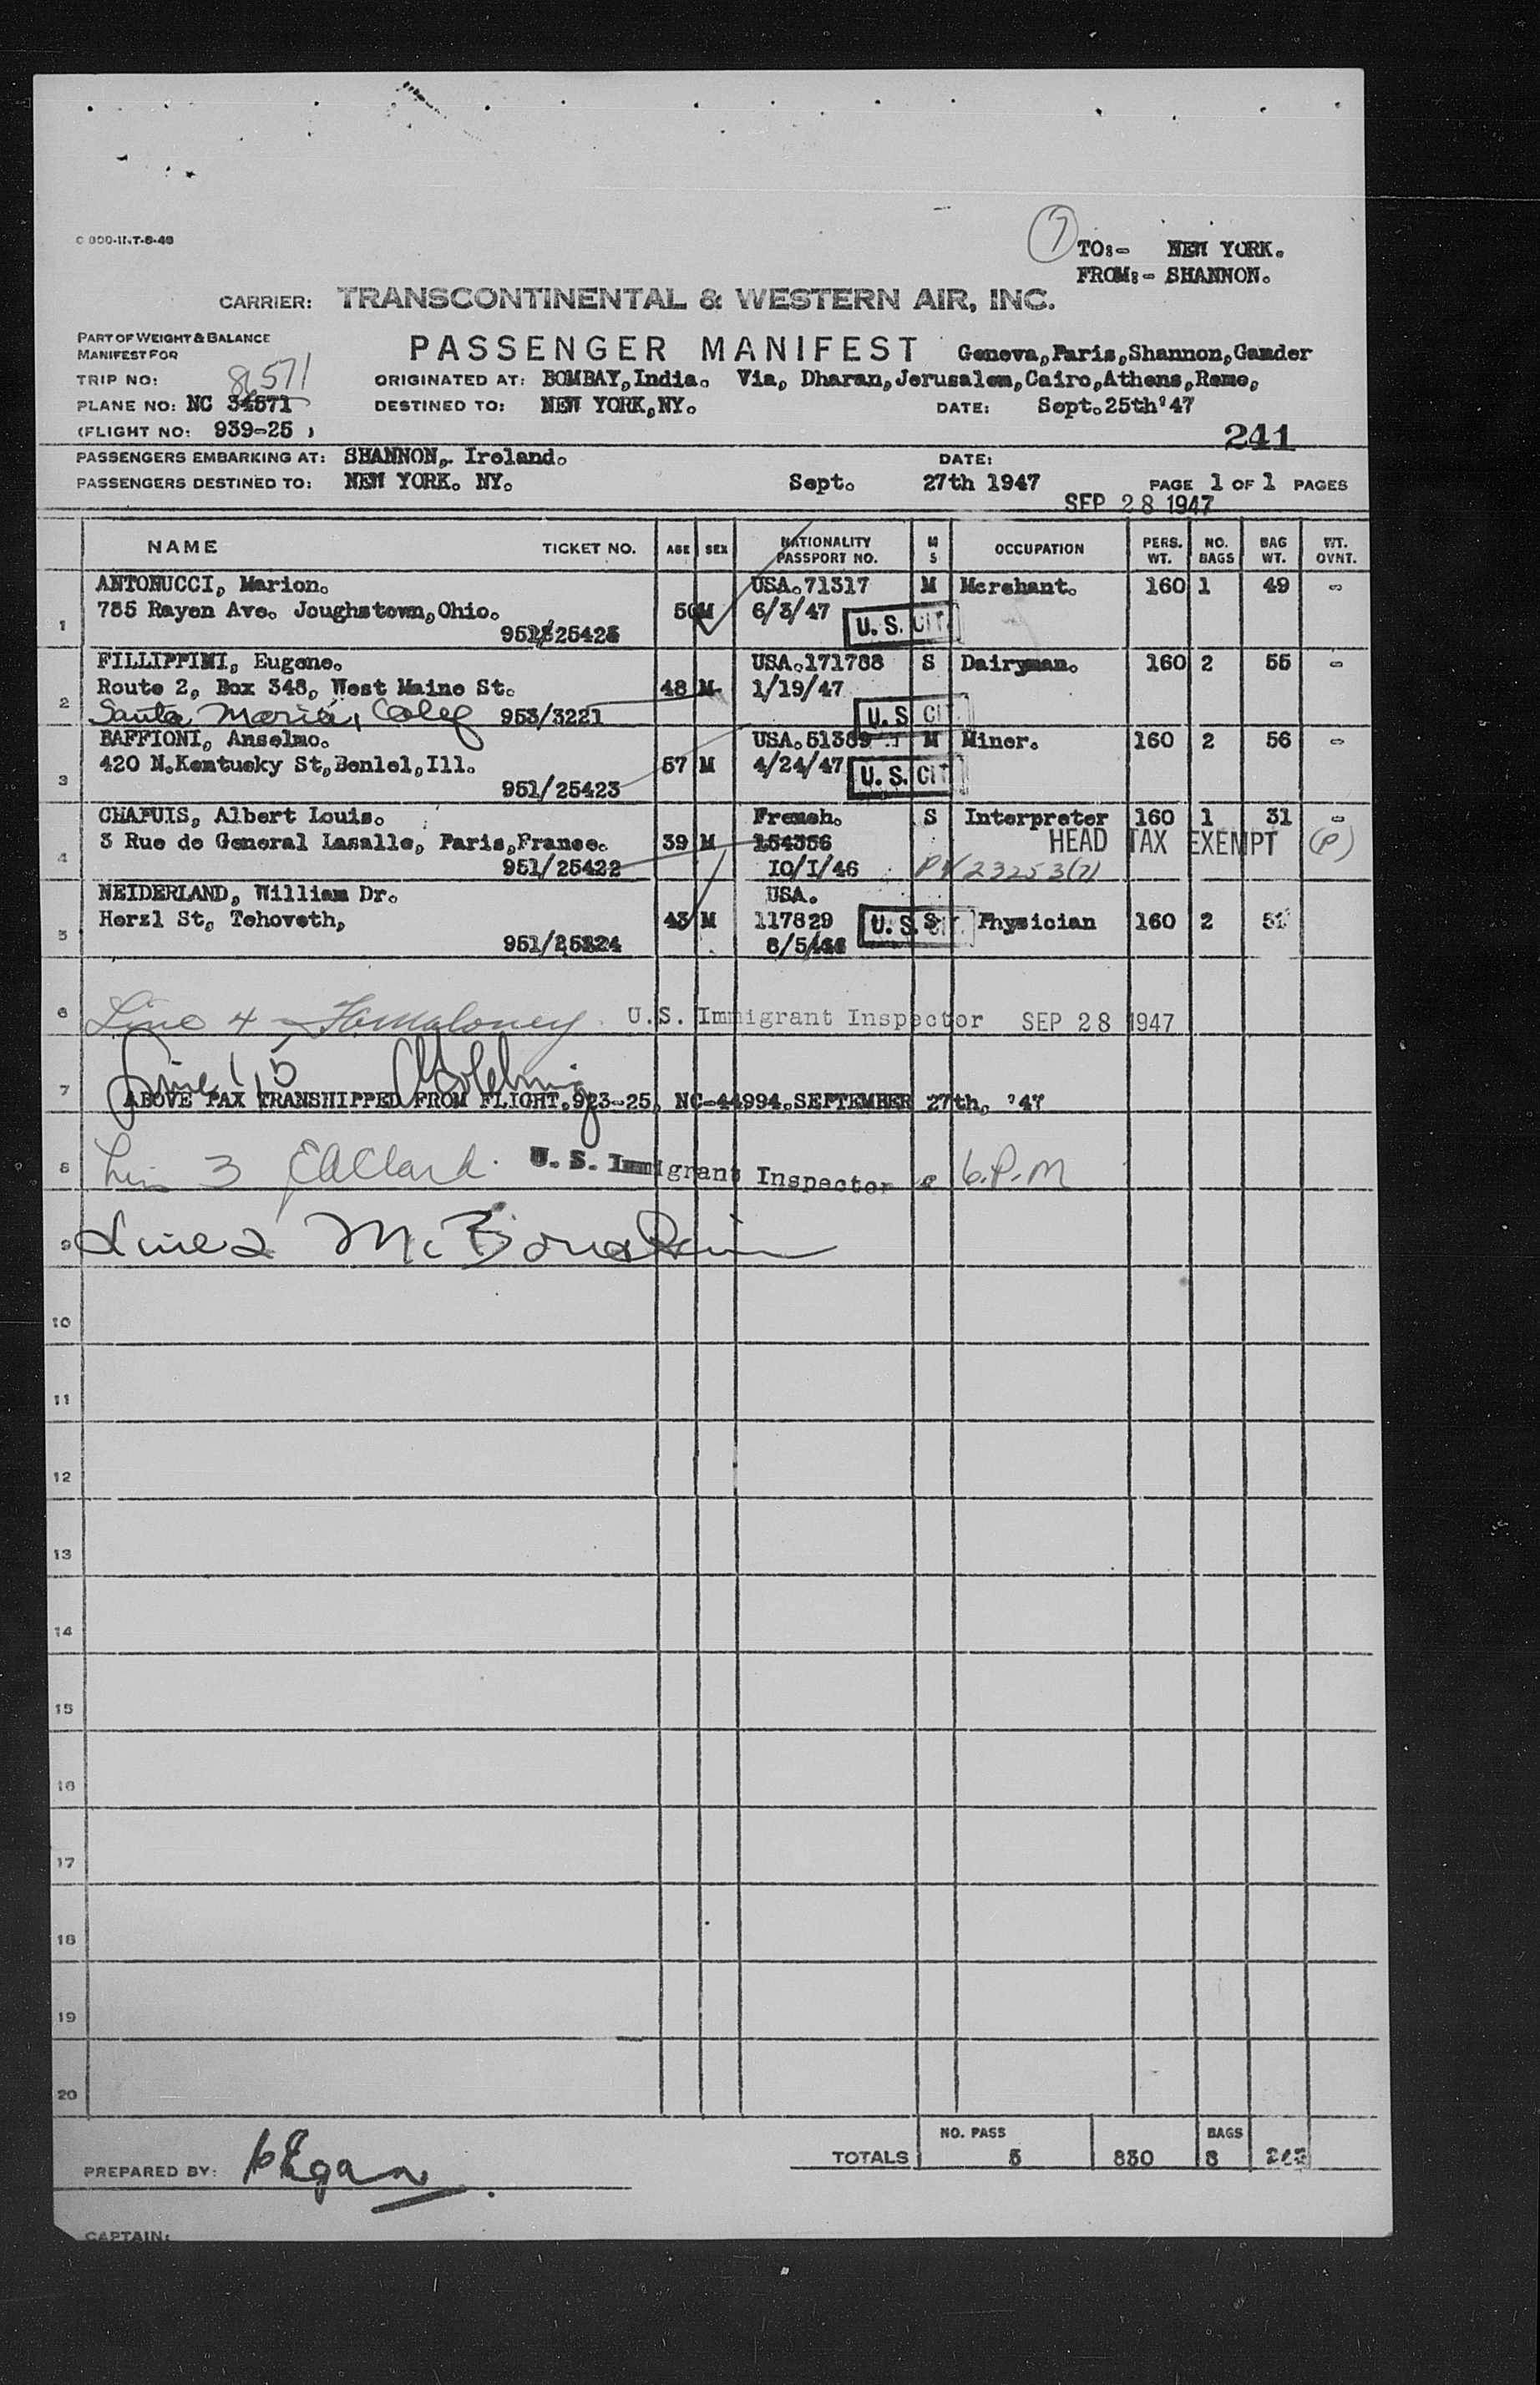 C 800-INT-6-46
7
TO:- NEW YORK.
FROM:- SHANNON.
CARRIER: TRANSCONTINENTAL & WESTERN AIR, INC.
PART OF WEIGHT & BALANCE
MANIFEST FOR
PASSENGER MANIFEST Geneva,Paris,Shannon,Gander
TRIP NO: 86571 ORIGINATED AT: BOMBAY,India. Via, Dharan,Jerusalem,Cairo,Athens,Rome,
PLANE NO: NC 34571 DESTINED TO: NEW YORK,NY. DATE: Sept.25th'47
(FLIGHT NO: 939-25 ) 241
PASSENGERS EMBARKING AT: SHANNON, Ireland. DATE:
PASSENGERS DESTINED TO: NEW YORK. NY. Sept. 27th 1947 PAGE 1 OF 1 PAGES
SEP 28 1947
NAME TICKET NO. AGE SEX NATIONALITY PASSPORT NO. M S OCCUPATION PERS. WT. NO. BAGS BAG WT. WT. OVNT.
ANTONUCCI, Marion. USA.71317 M Merchant. 160 1 49 -
785 Rayen Ave. Joughstown,Ohio. 50 M 6/3/47 U.S. CIT.
1
FILLIPPINI, Eugene. USA.171788 S Dairyman. 160 2 55 -
Route 2, Box 348, West Maine St. 48 M 1/19/47
2 Santa Maria, Calif 953/3221 U.S CIT.
BAFFIONI, Anselmo. USA.51389 M Miner. 160 2 56 -
420 N.Kentucky St,Benlel,Ill. 57 M 4/24/47 U.S. CIT
3 951/25423
CHAPUIS, Albert Louis. French. S Interpreter 160 1 31 -
3 Rue de General Lasalle, Paris,France. 39 M 154356 HEAD TAX EXEMPT (P)
4 951/25422 10/1/46 PV 23253(7)
NEIDERLAND, William Dr. USA.
Herzl St, Tehoveth, 43 M 117829 U.S. CIT. S Physician 160 2
5 951/25324
6 Line 4 U.S. Immigrant Inspector SEP 28 1947
Line 1,5
7 ABOVE PAX TRANSHIPPED FROM FLIGHT.923-25, NC-44994.SEPTEMBER 27th, '47
8 Lin 3 EAClark. U. S. Immigrant Inspector 6.P.M
9 Line 2
10
11
12
13
14
15
16
17
18
19
20
NO. PASS BAGS
TOTALS 5 830 8
PREPARED BY: Egan
CAPTAIN: